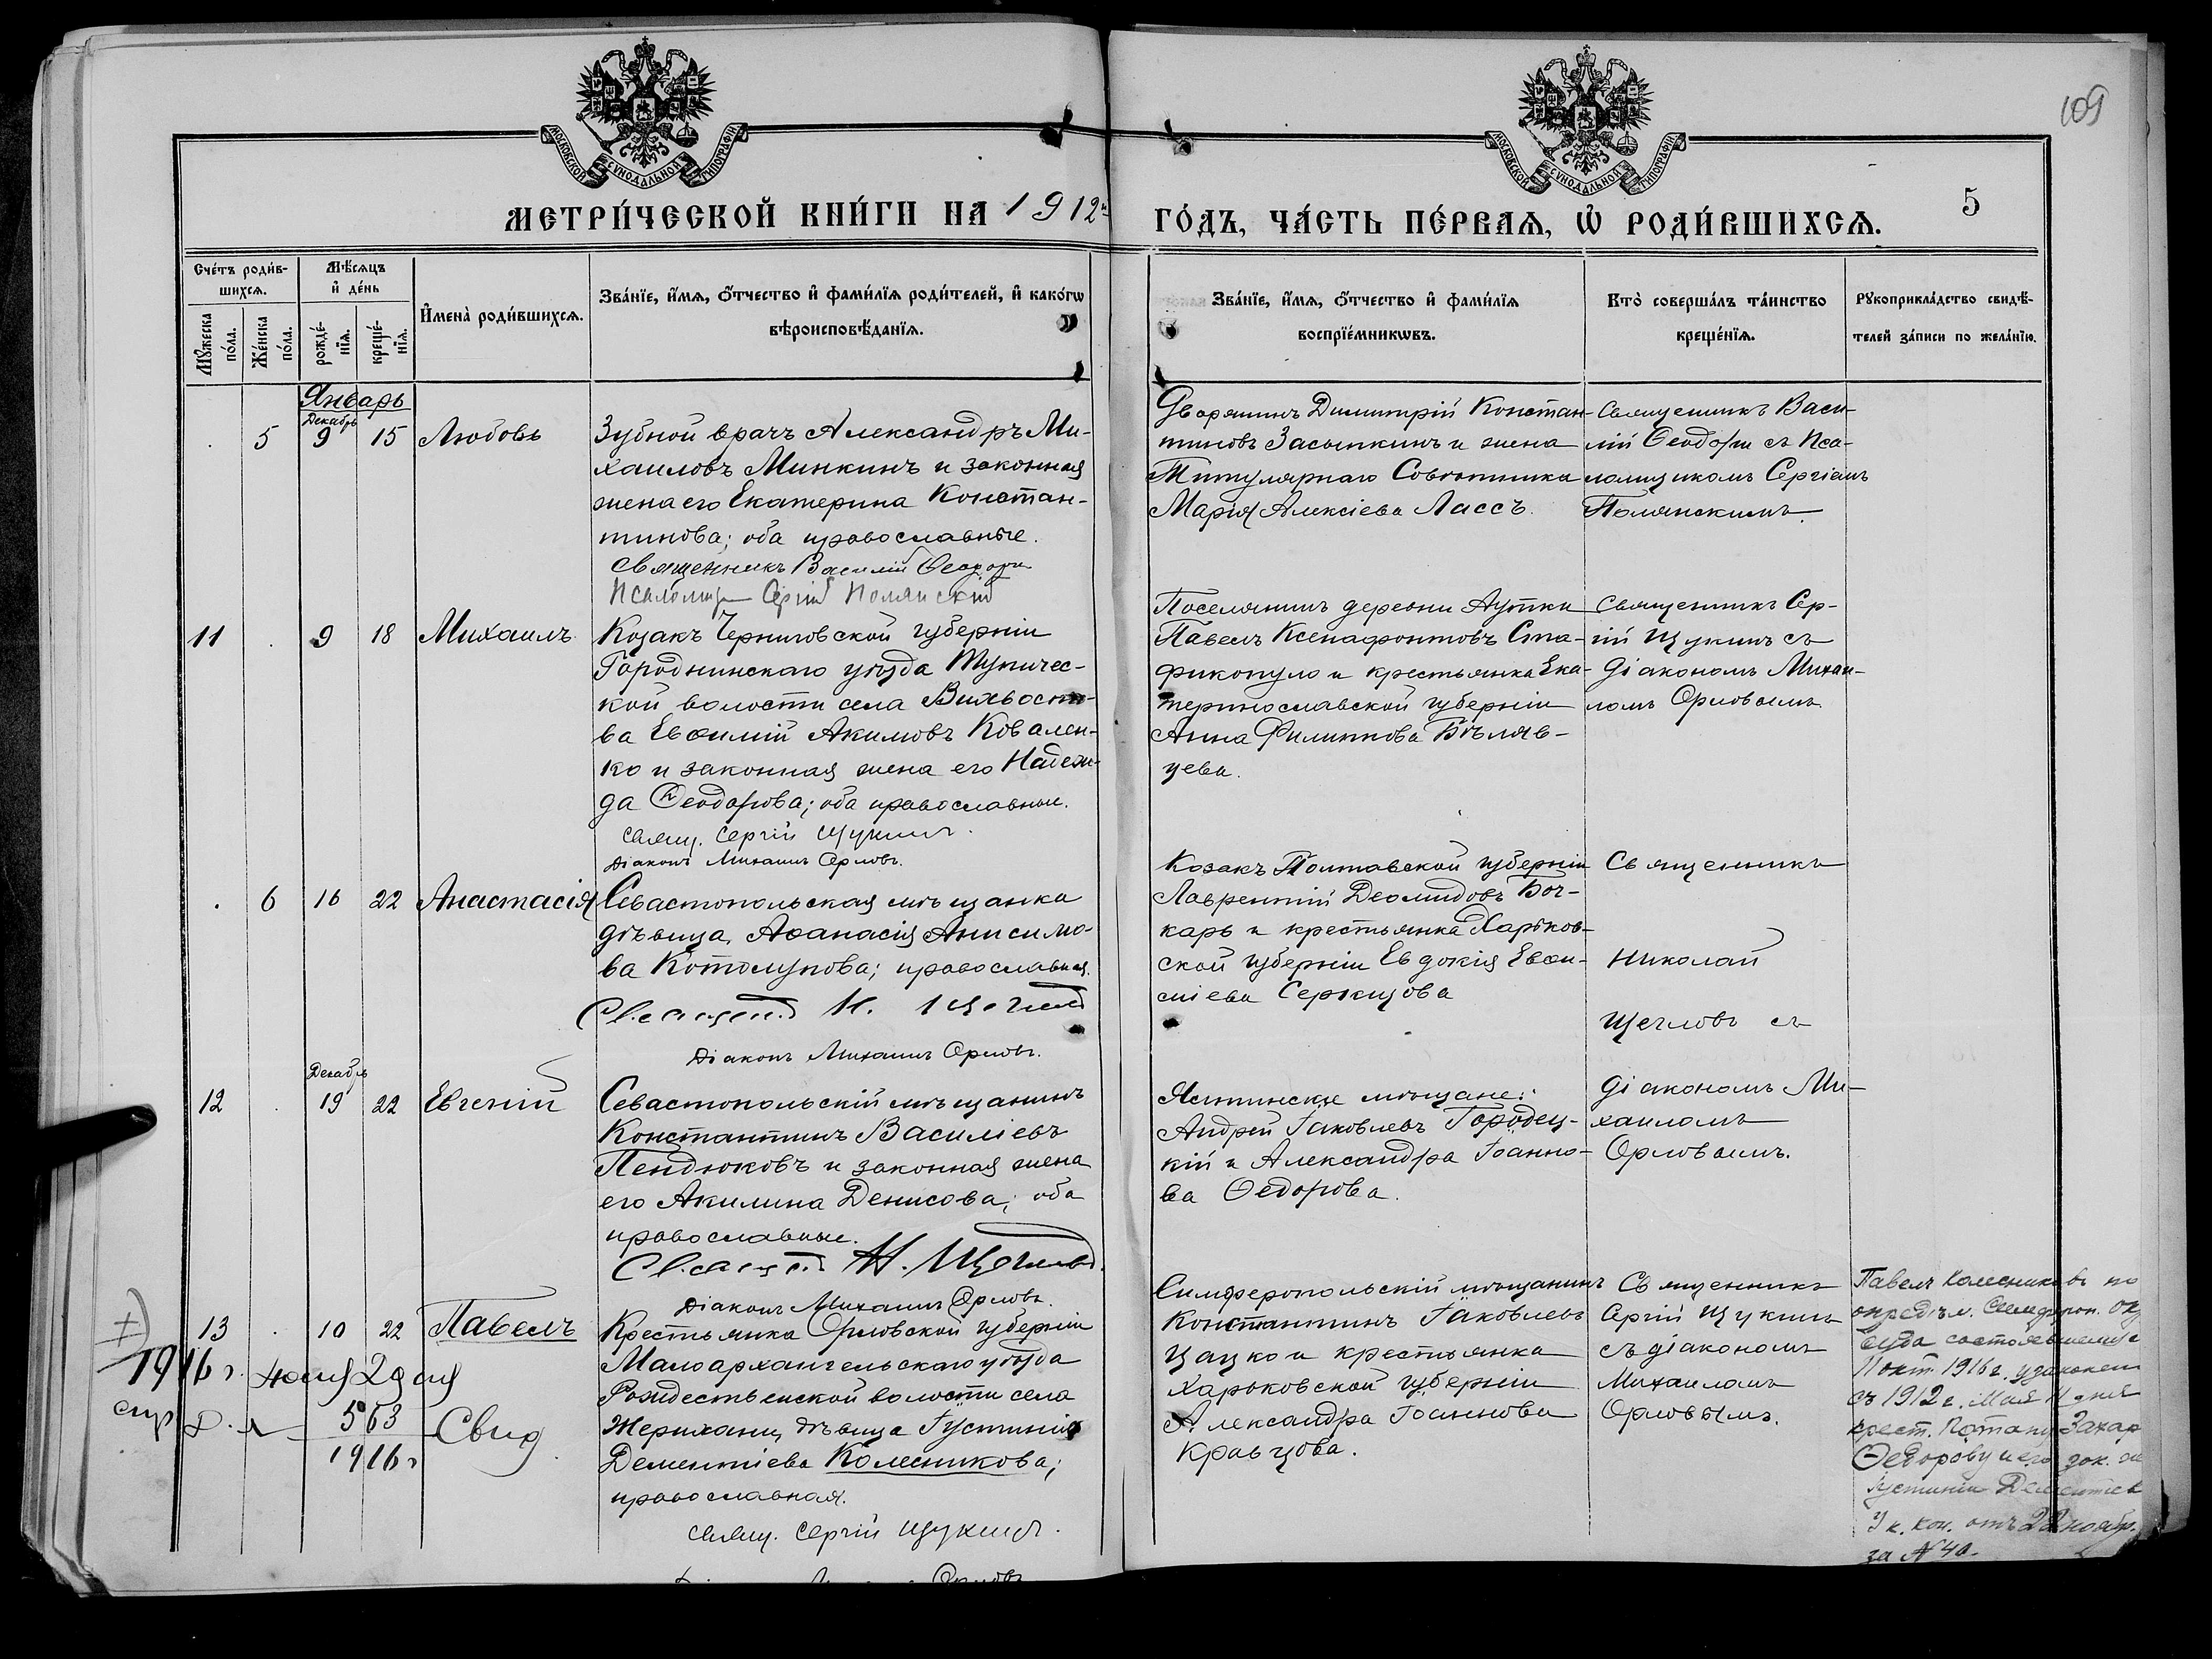 109
МОСКОВСКОЙ СѴНОДАЛЬНОЙ ТИПОГРАФІИ
МОСКОВСКОЙ СѴНОДАЛЬНОЙ ТИПОГРАФІИ
МЕТРИ́ЧЕСКОЙ КНИ́ГИ НА 1912
ГО́ДЪ, ЧА́СТЬ ПЕ́РВАѦ, Ѡ҆ РОДИ́ВШИХСѦ.
5
Сче́тъ роди́в-
шихсѧ.
Мꙋ́жеска
по́ла.
Же́нска
по́ла.
Мѣ́сѧцъ
и҆ де́нь
рожде́-
нїѧ.
креще́-
нїѧ.
И҆мена̀ роди́вшихсѧ.
Зва́нїе, и҆́мѧ, ѻ҆́тчество и҆ фами́лїѧ роди́телей, и҆ како́гѡ
вѣроисповѣ́данїѧ.
Зва́нїе, и҆́мѧ, ѻ҆́тчество и҆ фами́лїѧ
воспрїе́мникѡвъ.
Кто̀ соверша́лъ та́инство
креще́нїѧ.
Рꙋкоприкла́дство свидѣ́-
телей за́писи по жела́нїю.
Январь
Декабрь
5 9 15 Любовь
Зубной врачъ Александръ Ми-
хаиловъ Минкинъ и законная
жена его Екатерина Констан-
тинова; оба православные.
Священникъ Василій
Сергій Полянский
Дворянинъ Димитрій Констан-
тиновъ Засыпкинъ и жена
Титулярнаго Совѣтника
Марія Алексіева Лассъ.
Священникъ Васи-
лій Ѳеодори съ Пса-
ломщикомъ Сергіемъ
Полянскимъ.
11 9 18 Михаилъ
Козакъ Черниговской губерніи
Городнинскаго уѣзда Тупичес-
кой волости села Вихвосто-
ва Евѳимій Акимовъ Ковален-
ко и законная жена его Надеж-
да Ѳеодорова; оба православные.
Свящ. Сергій Щукинъ.
Діаконъ Михаилъ Орловъ.
Поселянинъ деревни Аутки
Павелъ Ксенафонтовъ Ста-
фикопуло и крестьянка Ека-
теринославской губерніи
Анна Филиппова Бѣляв-
цева.
Священникъ Сер-
гій Щукинъ съ
діакономъ Михаи-
ломъ Орловымъ
6 16 22 Анастасія
Севастопольская мѣщанка
дѣвица, Аѳанасія Анисимо-
ва Котолупова; православная.
Н. Щегловъ
Діаконъ Михаилъ Орловъ.
Козакъ Полтавской губерніи
Лаврентій Деомидовъ Боч-
карь и крестьянка Харьков-
ской губерніи Евдокія Евѳи-
міева
Священникъ
Николай
Щегловъ съ
діакономъ Ми-
хаиломъ
Орловымъ.
Декабрь
12 19 22 Евгеній
Севастопольскій мѣщанинъ
Константинъ Василіевъ
Пендюковъ и законная жена
его Акилина Денисова; оба
православные.
Н. Щегловъ.
Діаконъ Михаилъ Орловъ.
Ялтинскіе мѣщане:
Андрей Іаковлевъ Городец-
кій и Александра Іоанно-
ва Ѳедорова.
13 10 22 Павелъ
Крестьянка Орловской губерніи
Малоархангельскаго уѣзда
Рождественской волости села
дѣвица Іустинія
Дементіева Колесникова;
православная.
Свящ. Сергій Щукинъ.
Орловъ
1916 г. 29
563
1916 г
Свид.
Симферопольскій мѣщанинъ
Константинъ Іаковлевъ
Цацко и крестьянка
Харьковской губерніи
Александра Іоаннова
Кравцова.
Священникъ
Сергій Щукинъ
съ діакономъ
Михаиломъ
Орловымъ.
Павелъ Колесниковъ по
опредѣл. Симфероп. Окр
Суда состоявшемуся
1916 г. узаконенъ
съ 1912 г. Мая
крест. Захар
Ѳедорову и его зак. ж
Іустиніи Дементіев
Ук. Кон. отъ 22 нояб.
за № 40.